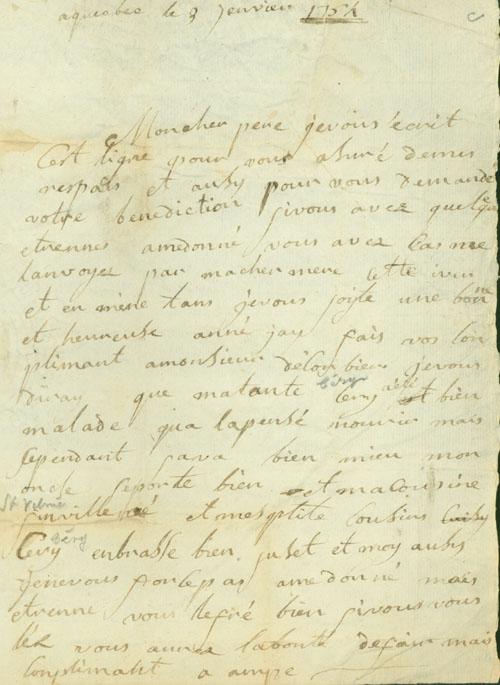 aquebec le 9 jenvier 1754
Moncher pere jevous écrit
Cest ligne pour vous asuré demes
respais et ausy pour vous demande
votre benediction sivous avez quelque
etrennes amedonné vous avez Cas me
lanvoyez par machermere cette iver
et en mème tans jevous soite une bonne
et heureuse anné jay fais vos Con
plimant amonsieur jevous
diray que matante Cery et bien
malade qua lapensé mourir mais
Cependant sava bien mieu mon
oncle seporte bien et macousine
et mesptite Cousins
Cery enbrasse bien et moy ausy
jenevous forcepas amedonné mais
etrenne vous sivous vous
lez vous aurez labonté defair mais
Conplimant a